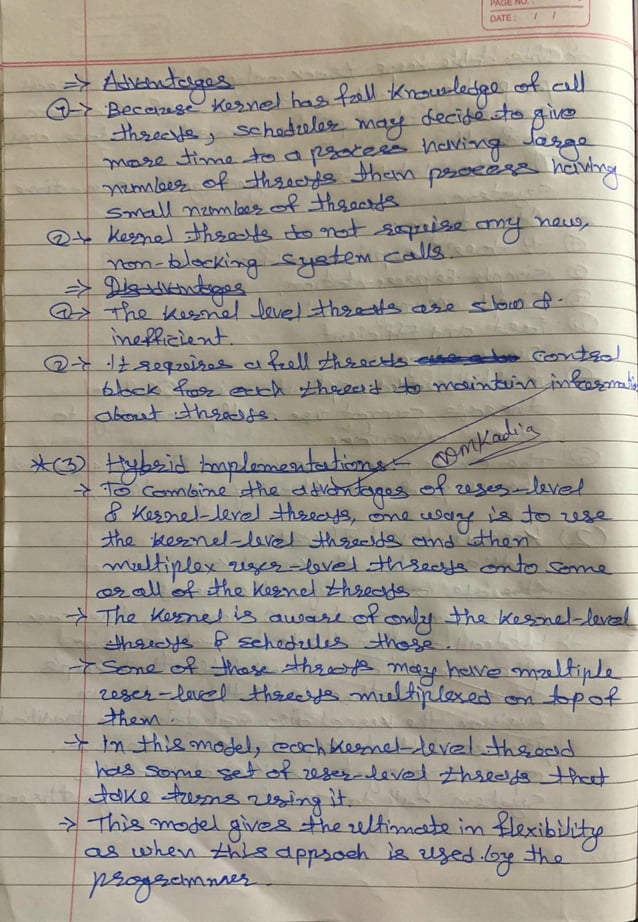 PAGE NO.:
DATE: / /
⇒ Advantages
①→ Because Kernel has full knowledge of all
threads, scheduler may decide to give
more time to a process having large
number of threads than process having
small number of threads
②→ Kernel threads do not require any new,
non-blocking system calls.
⇒ Disadvantages
①→ The Kernel level threads are slow &
inefficient.
②→ It requires a full threads control
block for each thread to maintain informati
about threads.
*(3) Hybrid Implementations:-
→ To combine the advantages of user-level
& Kernel-level threads, one way is to use
the kernel-level threads and then
multiplex user-level threads onto some
or all of the kernel threads
→ The Kernel is aware of only the Kernel-level
threads & schedules those.
→ Some of those threads may have multiple
user-level threads multiplexed on top of
them.
→ In this model, each kernel-level thread
has some set of user-level threads that
take turns using it.
→ This model gives the ultimate in flexibility
as when this approch is used by the
programmer.